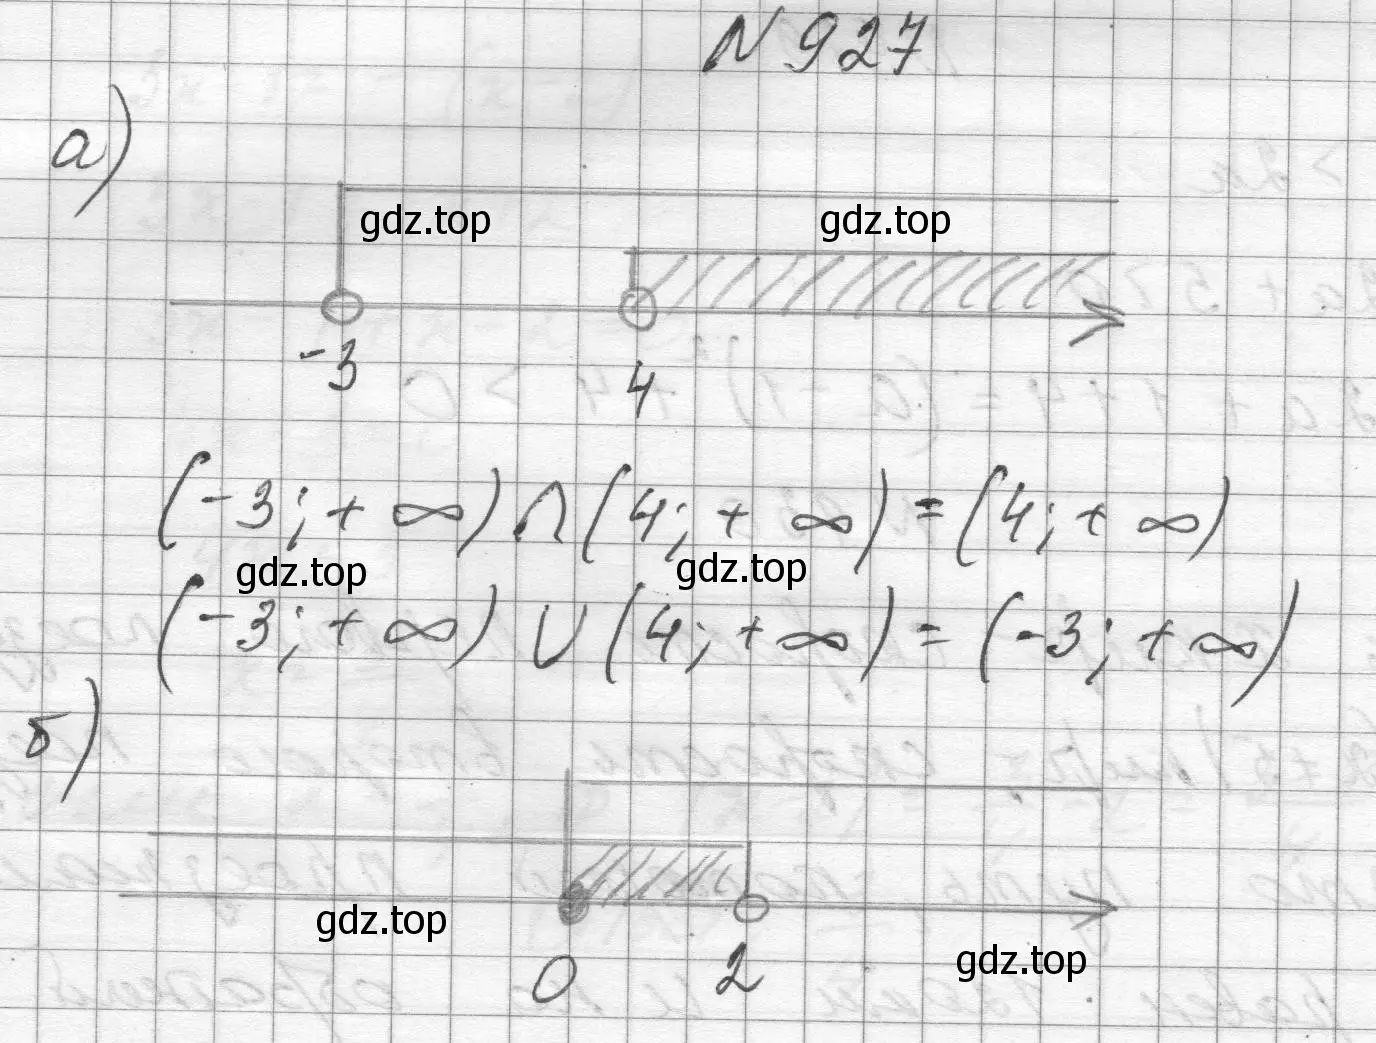 N 927
а)
gdz.top gdz.top
-3 4
(-3; + ∞) ∩ (4; + ∞) = (4; + ∞)
gdz.top gdz.top
(-3; + ∞) ∪ (4; + ∞) = (-3; + ∞)
б)
gdz.top gdz.top
0 2